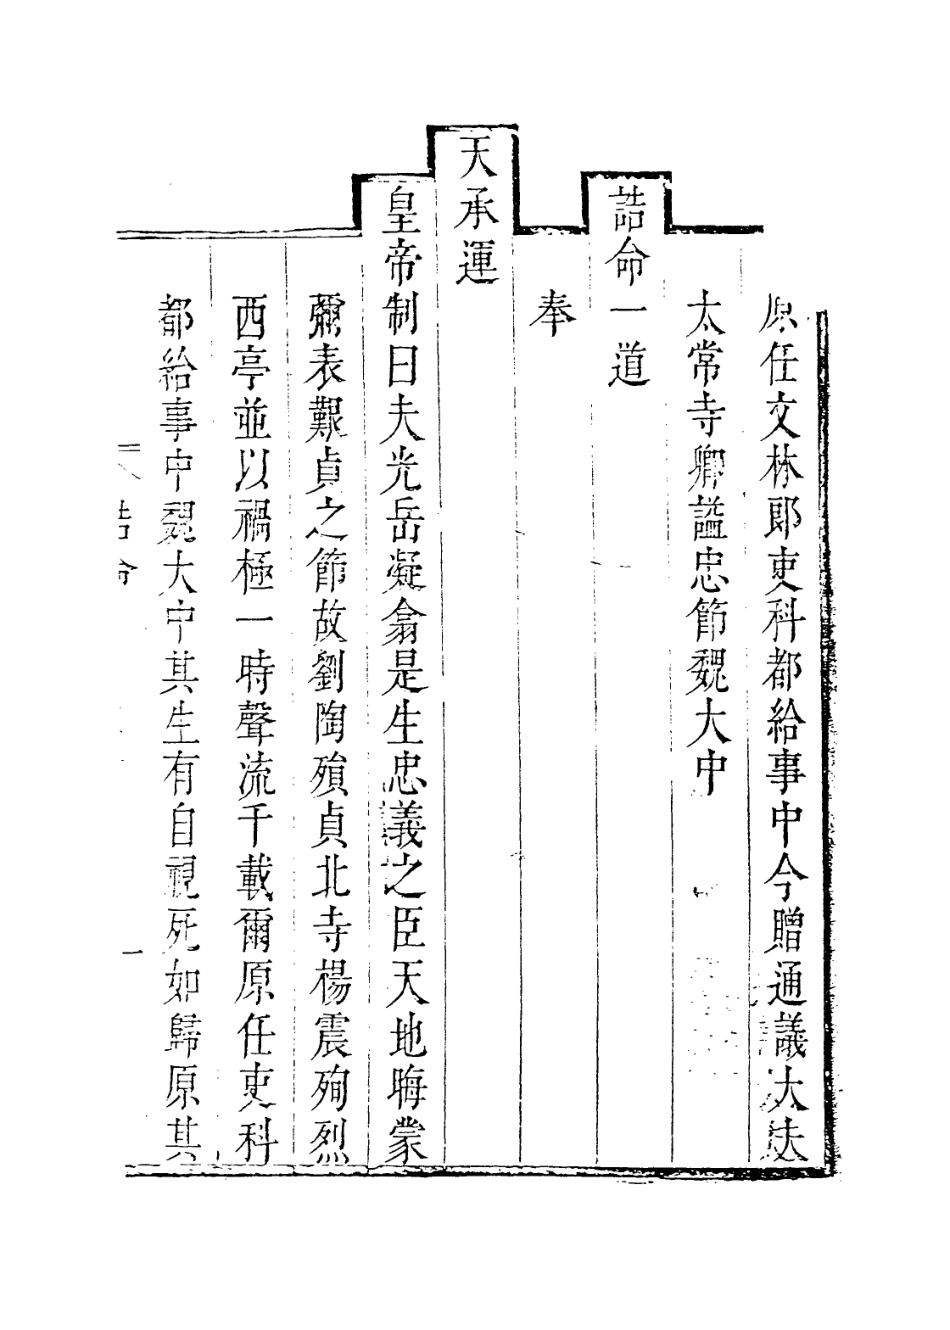 原任文林郎吏科都給事中今贈通議大夫
太常寺卿諡忠節魏大中
誥命一道
奉
天承運
皇帝制曰夫光岳凝翕是生忠義之臣天地晦蒙
彌表艱貞之節故劉陶殞貞北寺楊震殉烈
西亭並以禍極一時聲流千載爾原任吏科
都給事中魏大中其生有自視死如歸原其
誥命
一